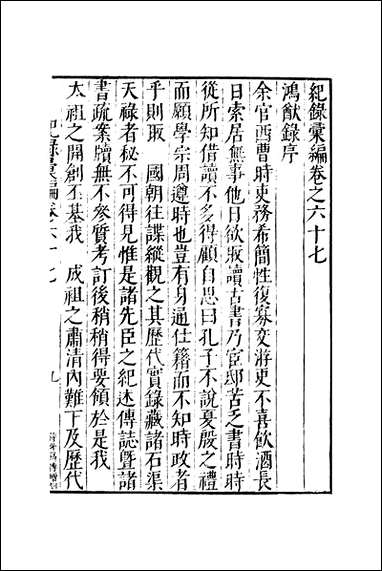 紀錄彙編卷之六十七
鴻猷錄序
余官西曹時吏務希簡性復寡交游更不喜飲酒長
日索居無事他日欲取讀古書乃宦邸苦乏書時時
從所知借讀不多得顧自思曰孔子不說夏殷之禮
而願學宗周遵時也豈有身通仕籍而不知時政者
乎則取 國朝往諜縱觀之其歷代實錄藏諸石渠
天祿者秘不可得見惟是諸先臣之紀述傳誌暨諸
書疏案牘無不參質考訂後稍稍得要領於是我
太祖之開創丕基我 成祖之肅清內難下及歷代